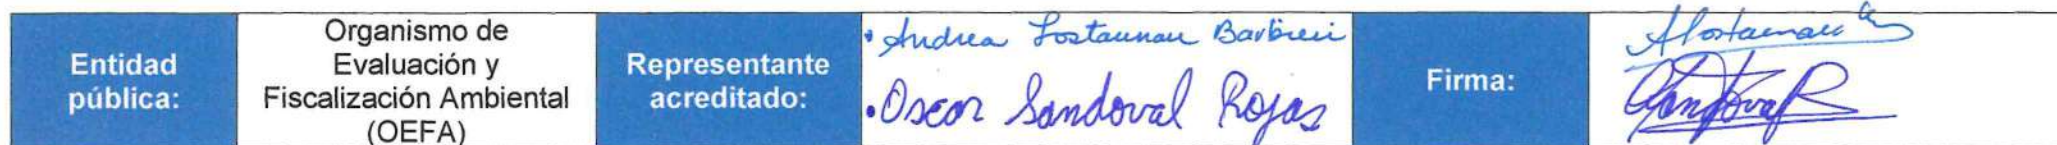 Entidad pública:
Organismo de
Evaluación y
Fiscalización Ambiental
(OEFA)
Representante acreditado:
• Andrea Lostaunau Barbieri
• Oscar Sandoval Rojas
Firma: